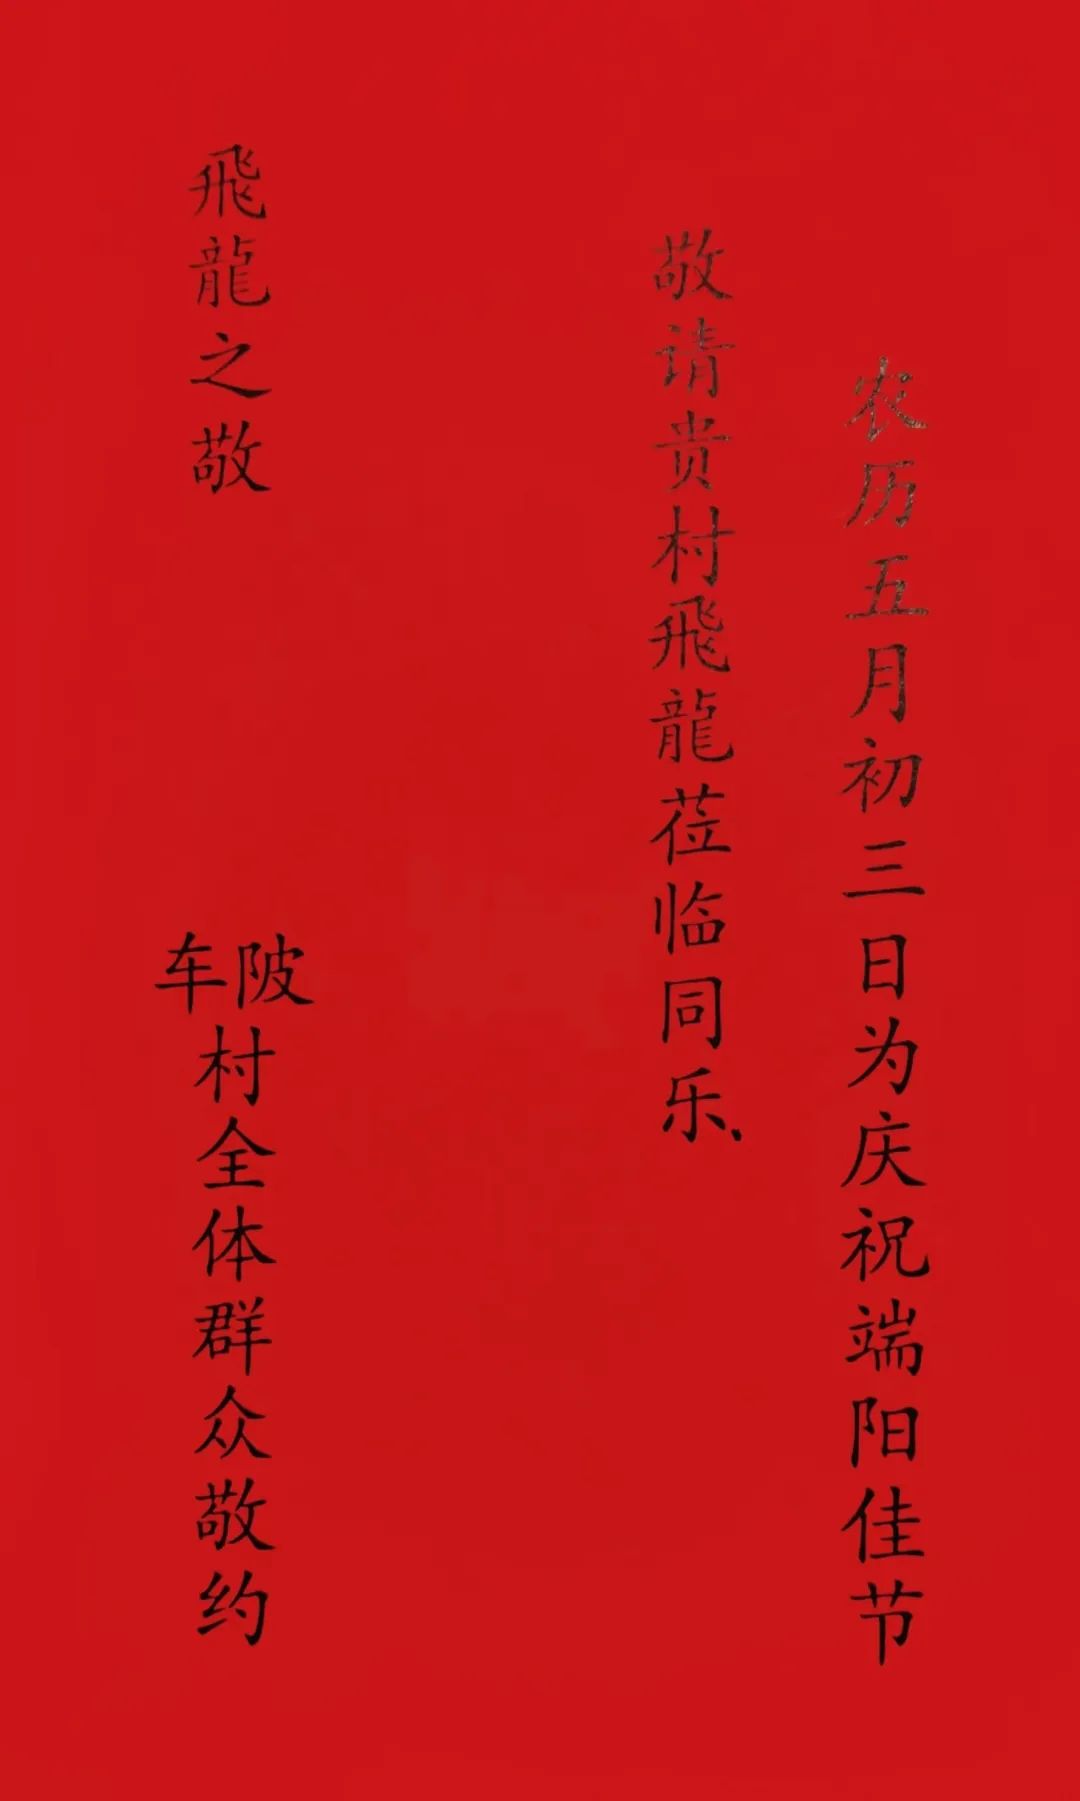 农历五月初三日为庆祝端阳佳节
敬请贵村飛龍莅临同乐.
飛龍之敬
车陂村全体群众敬约